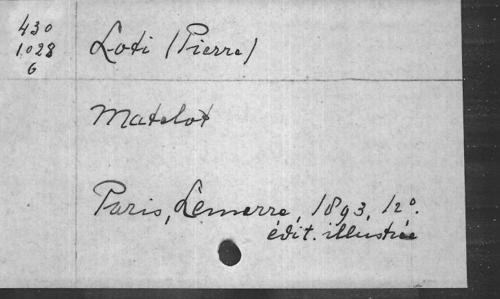 430
1028
6
Loti (Pierre)
Matelot
Paris, Lemerre, 1893, 12°.
édit. illustrée